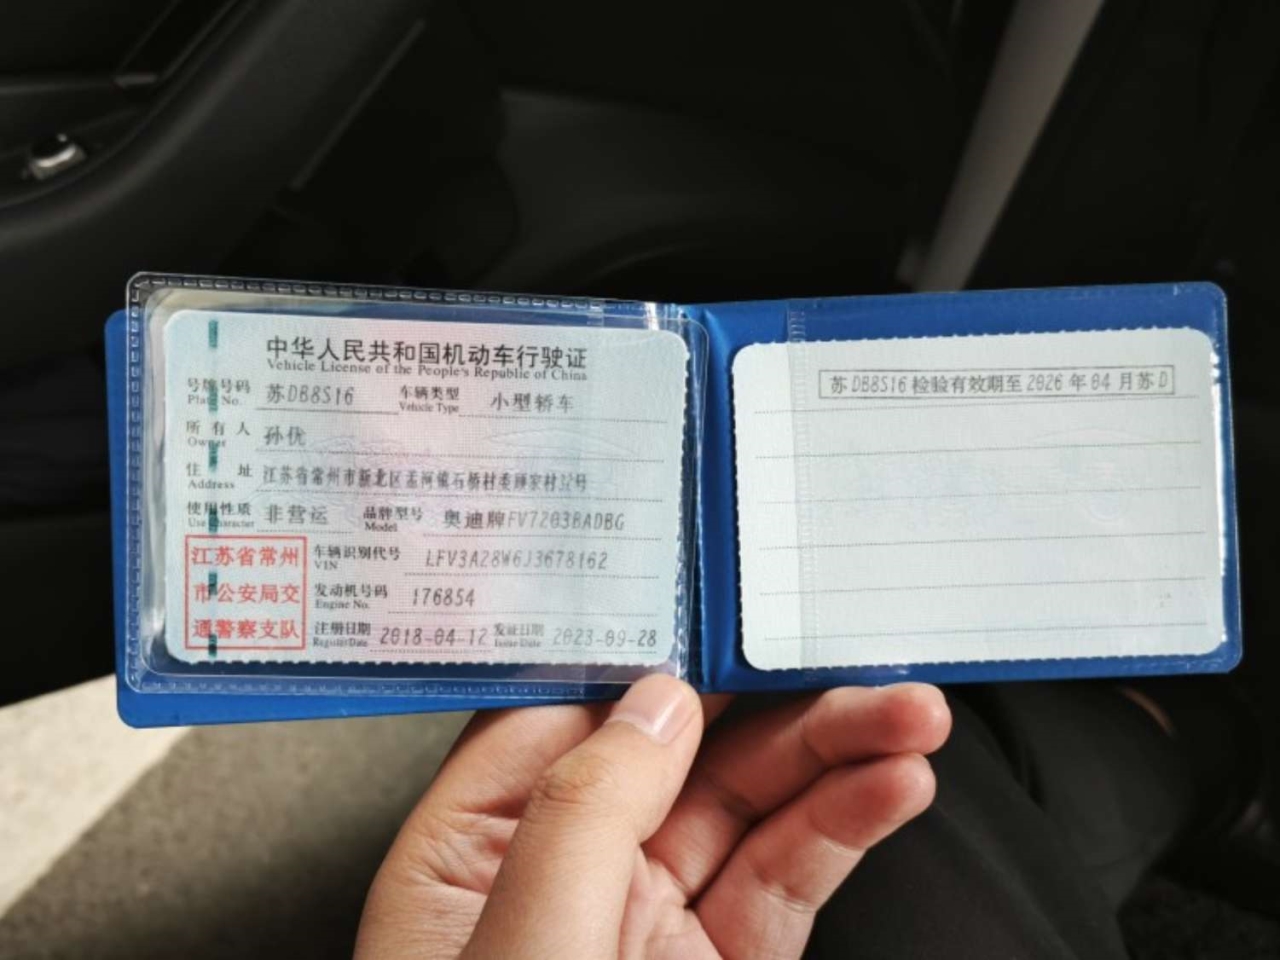 中华人民共和国机动车行驶证
Vehicle License of the People's Republic of China
号牌号码 苏DB8S16 车辆类型 小型轿车
Plate No. Vehicle Type
所有人 孙优
Owner
住址 江苏省常州市新北区孟河镇石桥村委顾家村32号
Address
使用性质 非营运 品牌型号 奥迪牌FV7203BADBG
Use Character Model
江苏省常州
市公安局交
通警察支队
车辆识别代号 LFV3A28W6J3678162
VIN
发动机号码 176854
Engine No.
注册日期 2018-04-12 发证日期 2023-09-28
Register Date Issue Date
苏DB8S16检验有效期至2026年04月苏D